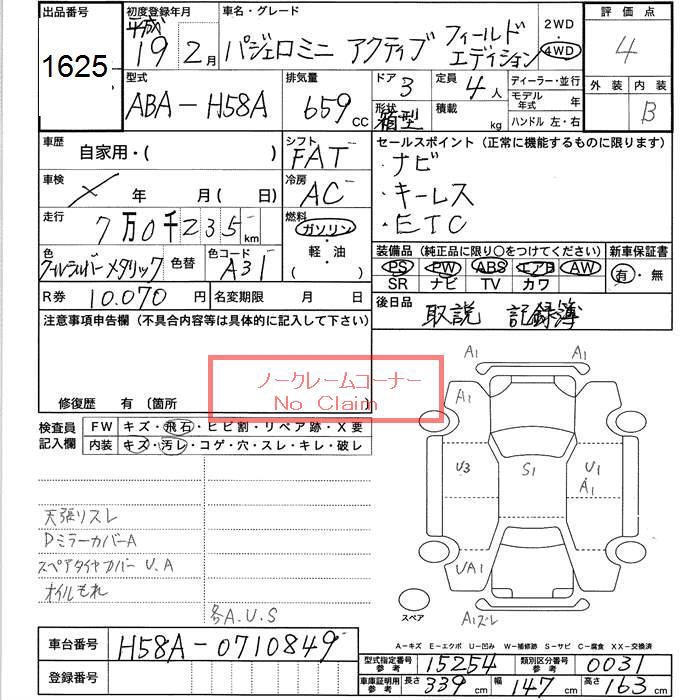 出品番号
1625
初度登録年月
平成
19 2月
車名・グレード
パジェロミニ アクティブ フィールド
エディション
2WD
4WD
評価点
4
外装 内装
B
型式
ABA-H58A
排気量
659 CC
ドア 3
形状 箱型
定員 4人
積載 kg
ディーラー・並行
モデル年式 年
ハンドル 左・右
車歴
自家用・( )
シフト
FAT
セールスポイント (正常に機能するものに限ります)
・ナビ
・キーレス
・ETC
車検
× 年 月( 日)
冷房
AC
走行
7万0千235km
燃料
ガソリン
・軽・油
( )
色
クールシルバーメタリック
色替
色コード
A31
装備品 (純正品に限り○をつけてください)
PS PW ABS エアB AW
SR ナビ TV カワ
新車保証書
有・無
R券 10.070 円
名変期限 月 日
後日品
取説 記録簿
注意事項申告欄 (不具合内容等は具体的に記入して下さい)
ノークレームコーナー
No Claim
修復歴 有 〔箇所
検査員
記入欄
FW キズ・飛石・ヒビ割・リペア跡・X要
内装 キズ・汚レ・コゲ・穴・スレ・キレ・破レ
天張リスレ
Dミラーカバー A
スペアタイヤカバー U.A
オイルもれ
各A.U.S
A1 A1
A1
U3 S1 U1
A1
UA1
スペア
A1ズレ
A-キズ E-エクボ U-凹み W-補修跡 S-サビ C-腐食 XX-交換済
車台番号 H58A-0710849
登録番号
型式指定番号参考 15254
類別区分番号参考 0031
車庫証明用参考 長さ 339cm 幅 147cm 高さ 163cm